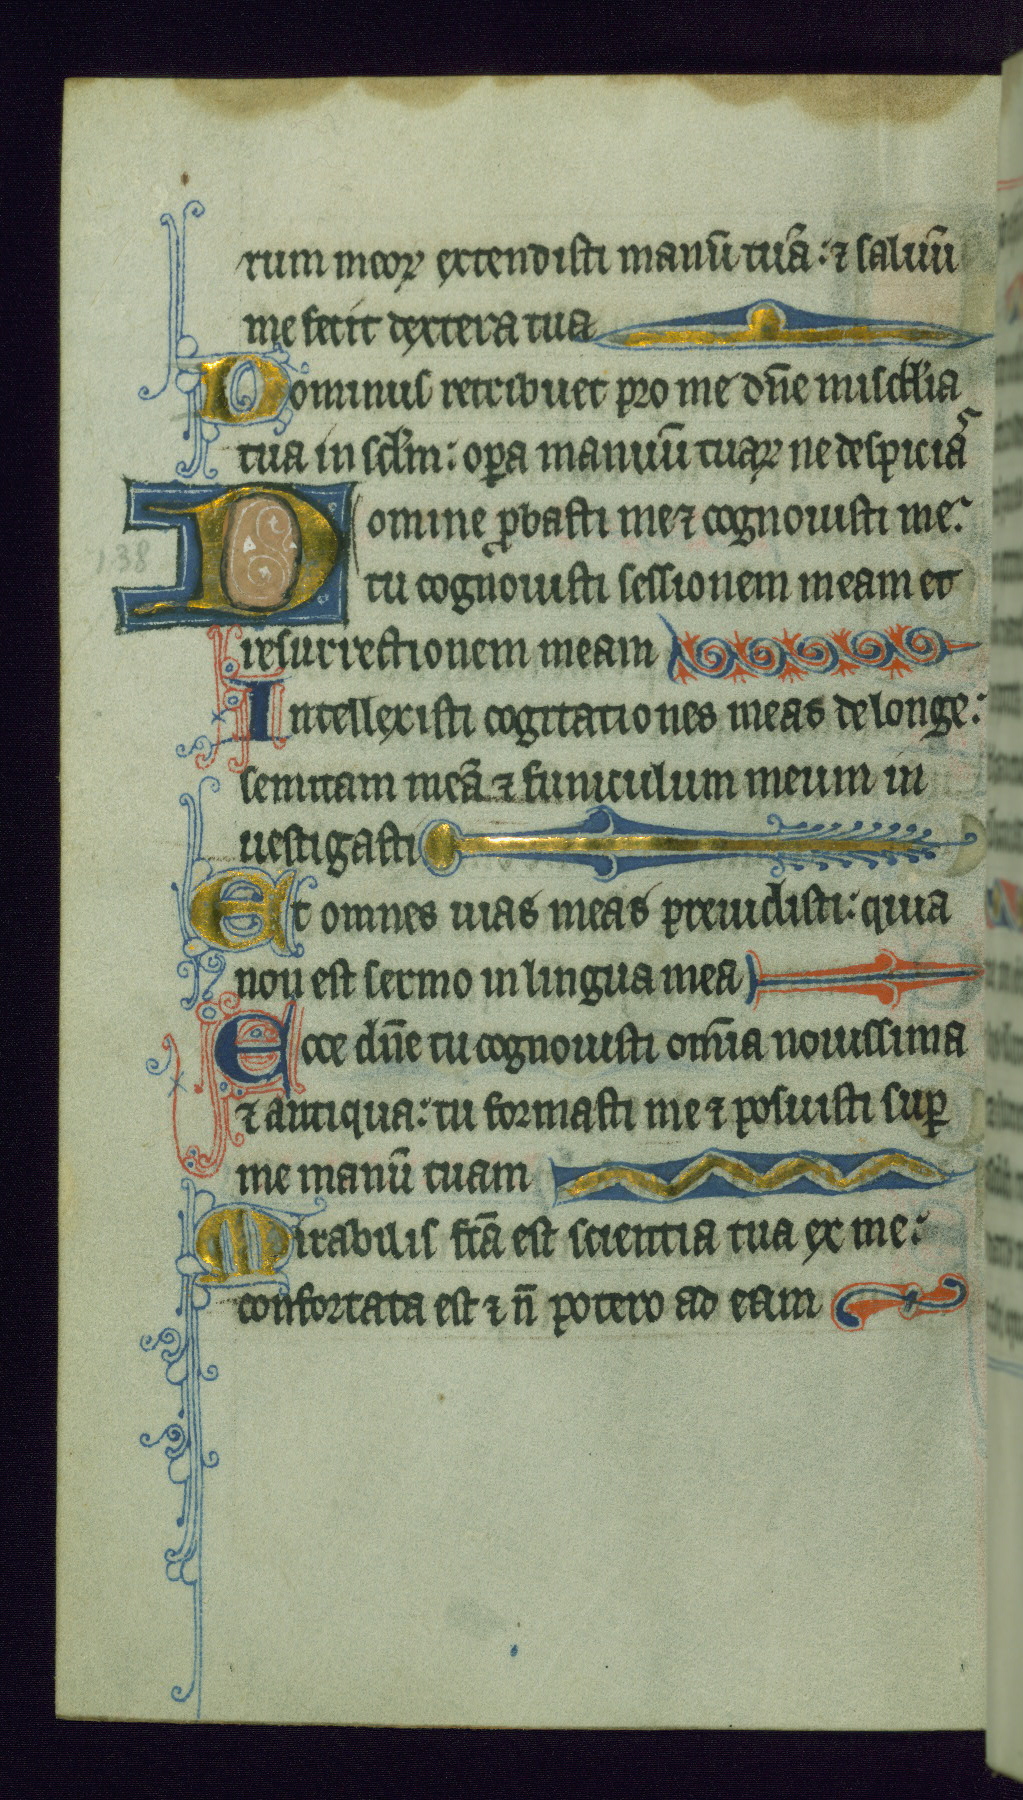 rum meoꝝ extendisti manū tuā: ⁊ saluū
me fecit dextera tua
Dominus retribuet pro me dn̄e misc̄dia
tua in scl̄m: oꝑa manuū tuaꝝ ne despicias
Domine ꝓbasti me ⁊ cognouisti me:
tu cognouisti sessionem meam et
138
resurrectionem meam
Intellexisti cogitationes meas de longe:
semitam meā ⁊ funiculum meum in
uestigasti
Et omnes uias meas preuidisti: quia
non est sermo in lingua mea
Ecce dn̄e tu cognouisti om̄ia nouissima
⁊ antiqua: tu formasti me ⁊ posuisti suꝑ
me manū tuam
Mirabilis fc̄a est scientia tua ex me:
confortata est ⁊ n̄ potero ad eam